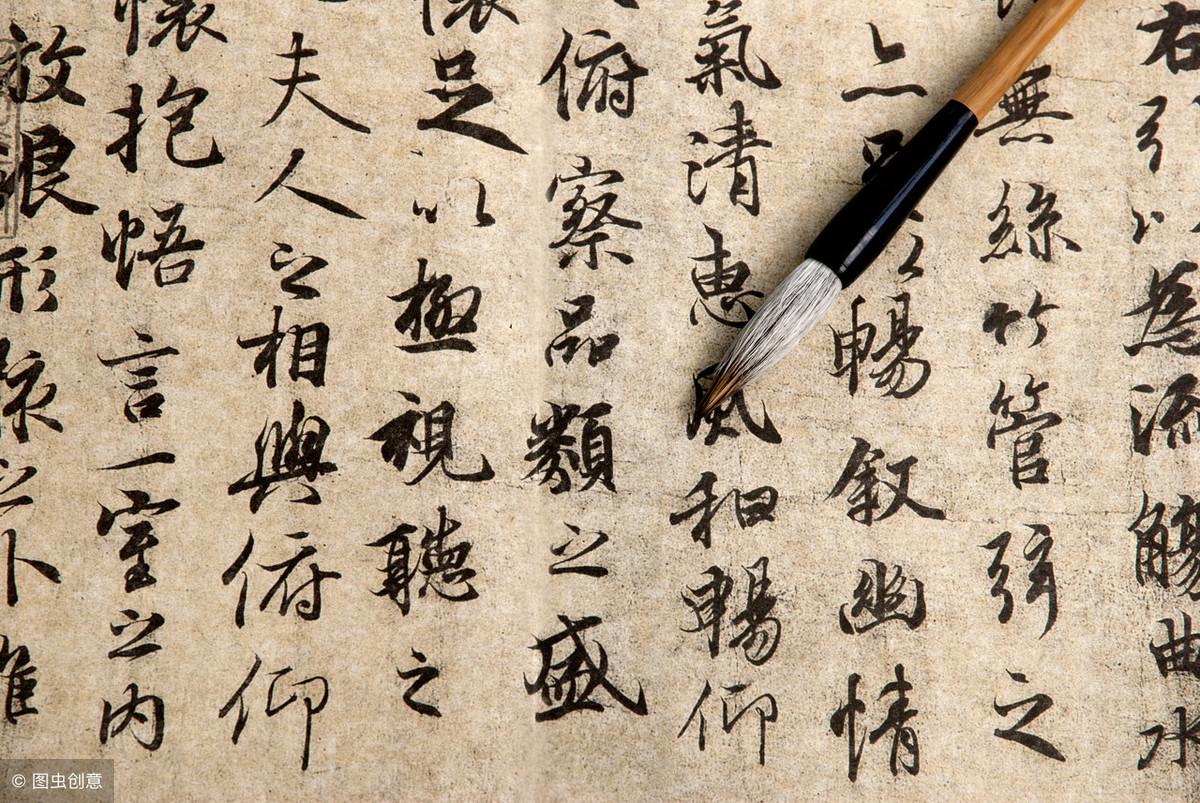 右引以為流觴曲水
無絲竹管弦之
亦足以暢叙幽情
氣清惠風和暢仰
俯察品類之盛
懷足以極視聽之
夫人之相與俯仰
懷抱悟言一室之内
放浪形骸之外雖
© 图虫创意